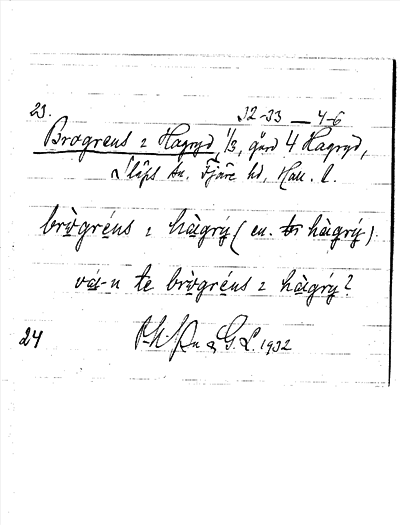 23.
32-33 — 4-6
Brogrens i Hagryd, 1/3, gård 4 Hagryd,
Släps sn. Fjäre hd, Hall. l.
brògréns i hàgrý (en. hàgrý).
vá-n te brògréns i hàgrý?
24
G.L. 1932